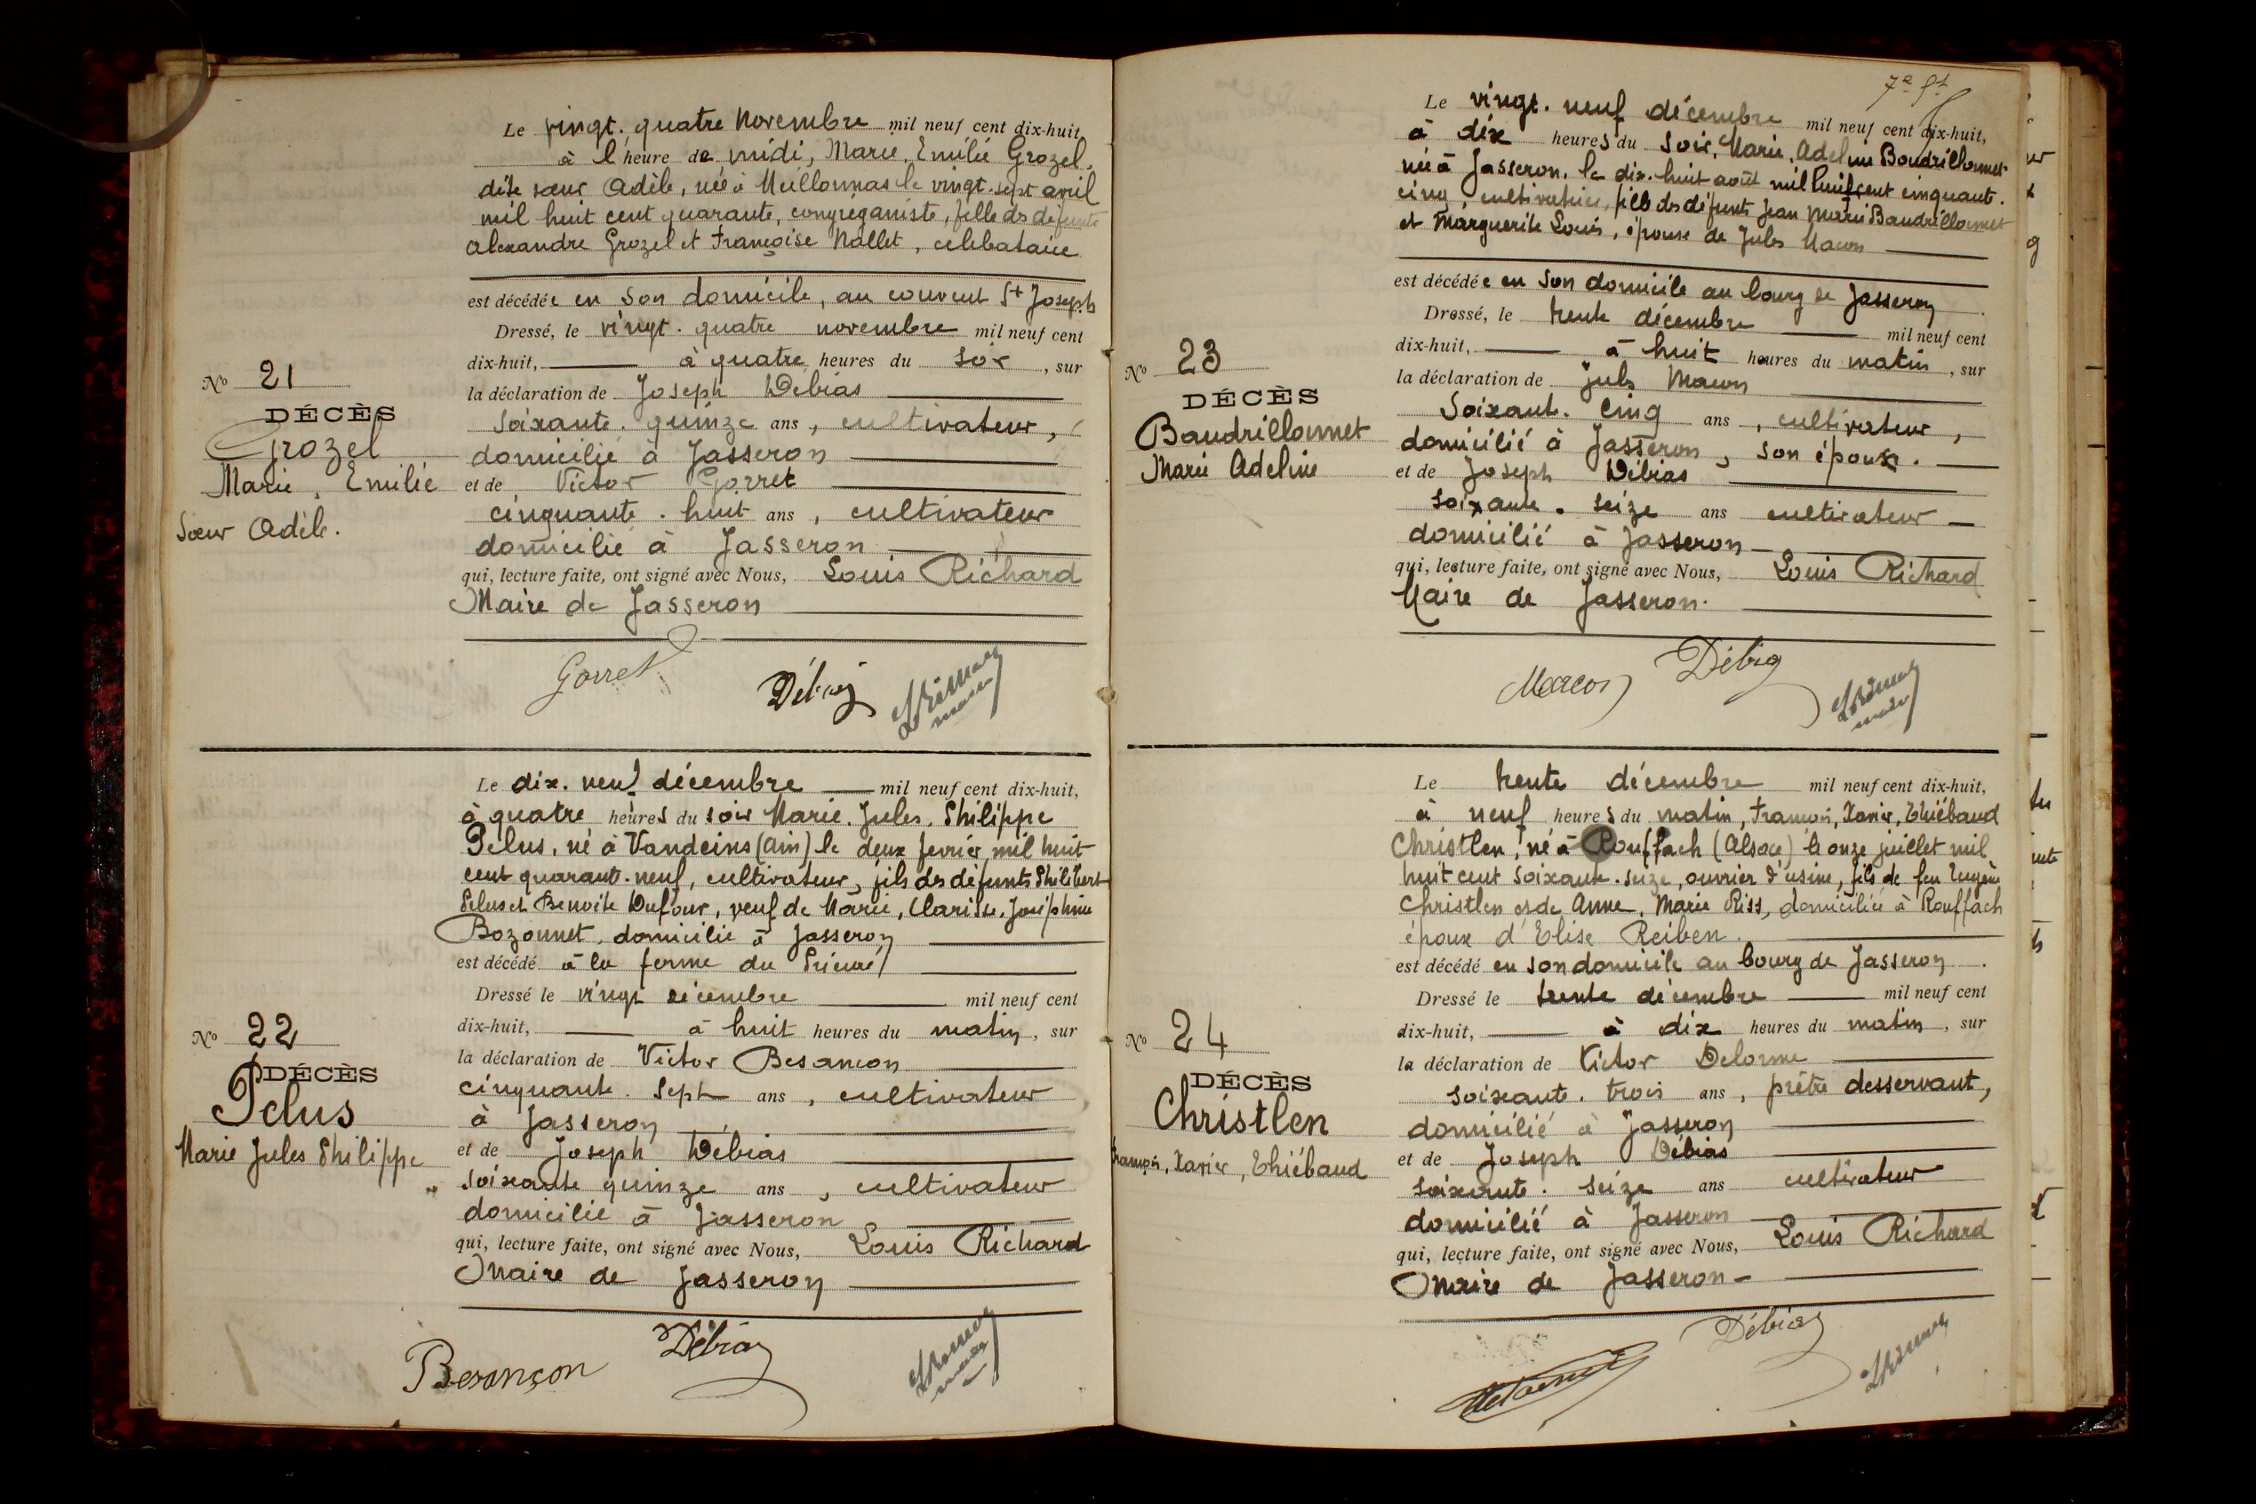 Le vingt. quatre Novembre mil neuf cent dix-huit,
à l'heure de midi, Marie, Emilie Grozel,
dite sœur Adèle, née à Meillonnas le vingt. sept avril
mil huit cent quarante, congréganiste, fille des défunts
Alexandre Grozel et Françoise Nallet, célibataire
est décédée en son domicile, au couvent St Joseph
Dressé, le vingt. quatre novembre mil neuf cent
dix-huit, à quatre heures du soir, sur
la déclaration de Joseph Débias
soixante. quinze ans, cultivateur,
domicilié à Jasseron
et de Victor Gorret
cinquante. huit ans, cultivateur
domicilié à Jasseron
qui, lecture faite, ont signé avec Nous, Louis Richard
Maire de Jasseron
No 21
DÉCÈS
Grozel
Marie, Emilie
Sœur Adèle.
Gorret Débias
maire
Le dix. neuf décembre mil neuf cent dix-huit,
à quatre heures du soir Marie. Jules. Philippe
Pelus, né à Vandeins (Ain) le deux février mil huit
cent quarante. neuf, cultivateur, fils des défunts Philibert
Pelus et Benoite Dufour, veuf de Marie, Clarisse, Joséphine
Bozonnet, domicilié à Jasseron
est décédé à la ferme du Prieuré
Dressé le vingt décembre mil neuf cent
dix-huit, à huit heures du matin, sur
la déclaration de Victor Besançon
cinquante. sept ans, cultivateur
à Jasseron
et de Joseph Débias
soixante quinze ans, cultivateur
domicilié à Jasseron
qui, lecture faite, ont signé avec Nous, Louis Richard
Maire de Jasseron
No 22
DÉCÈS
Pelus
Marie Jules Philippe
Besançon Débias
maire
7e ft
Le vingt. neuf décembre mil neuf cent dix-huit,
à dix heures du soir, Marie, Adeline Baudrillonnet
née à Jasseron, le dix. huit août mil huit cent cinquante.
cinq, cultivatrice, fille des défunts Jean Marie Baudrillonnet
et Marguerite Louis, épouse de Jules Macon
est décédée en son domicile au bourg de Jasseron
Dressé, le trente décembre mil neuf cent
dix-huit, à huit heures du matin, sur
la déclaration de Jules Macon
Soixante. cinq ans, cultivateur,
domicilié à Jasseron, son époux.
et de Joseph Débias
soixante. seize ans cultivateur
domicilié à Jasseron
qui, lecture faite, ont signé avec Nous, Louis Richard
Maire de Jasseron.
No 23
DÉCÈS
Baudrillonnet
Marie Adeline
Macon Débias
maire
Le trente décembre mil neuf cent dix-huit,
à neuf heures du matin, François, Xavier, Thiébaud
Christlen, né à Rouffach (Alsace) le onze juillet mil
huit cent soixante. seize, ouvrier d'usine, fils de feu Eugène
Christlen et de Anne, Marie Riss, domiciliée à Rouffach
époux d'Elise Reiben.
est décédé en son domicile au bourg de Jasseron.
Dressé le trente décembre mil neuf cent
dix-huit, à dix heures du matin, sur
la déclaration de Victor Delorme
soixante. trois ans, prêtre desservant,
domicilié à Jasseron
et de Joseph Débias
soixante. seize ans cultivateur
domicilié à Jasseron
qui, lecture faite, ont signé avec Nous, Louis Richard
Maire de Jasseron
No 24
DÉCÈS
Christlen
François, Xavier, Thiébaud
Delorme Débias